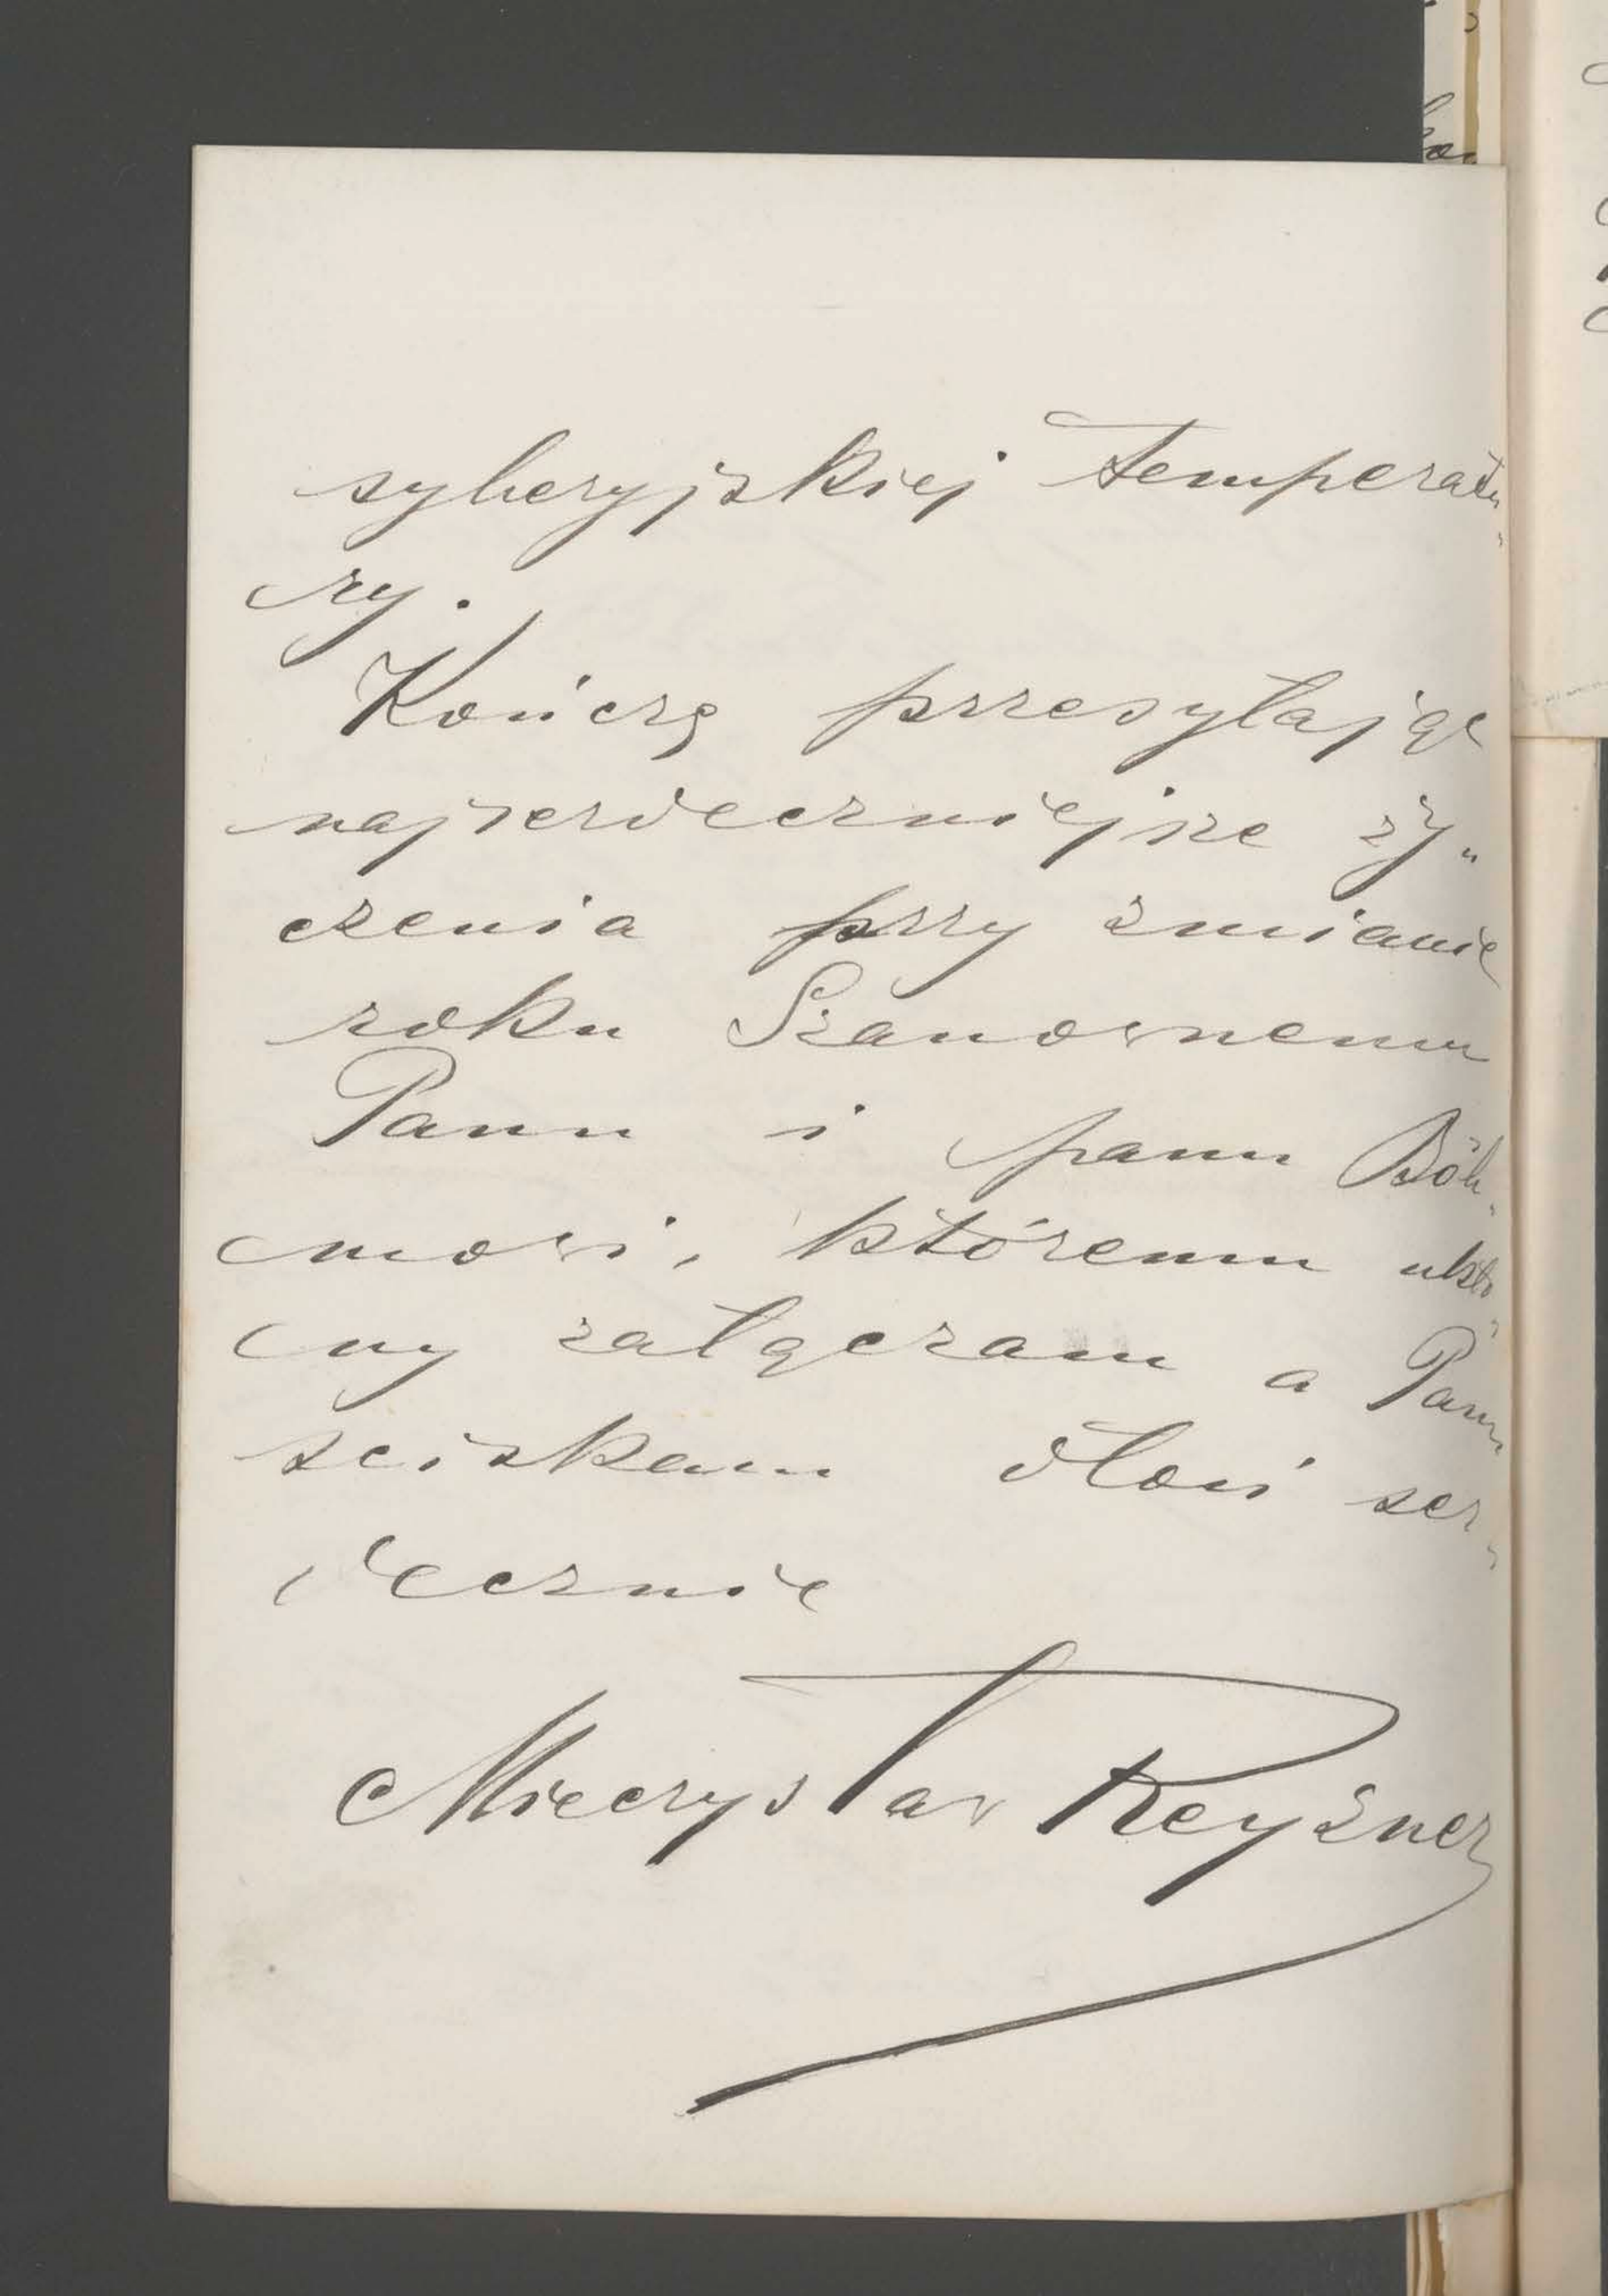 syberyjskiej temperatu„
ry.
Kończę przesyłając
najserdeczniejsze ży„
czenia przy zmianie
roku Szanownemu
Panu i panu Böh„
mowi, któremu ukło„
ny załączam a Panu
sciskam dłoń ser„
decznie
Mieczysław Reyzner